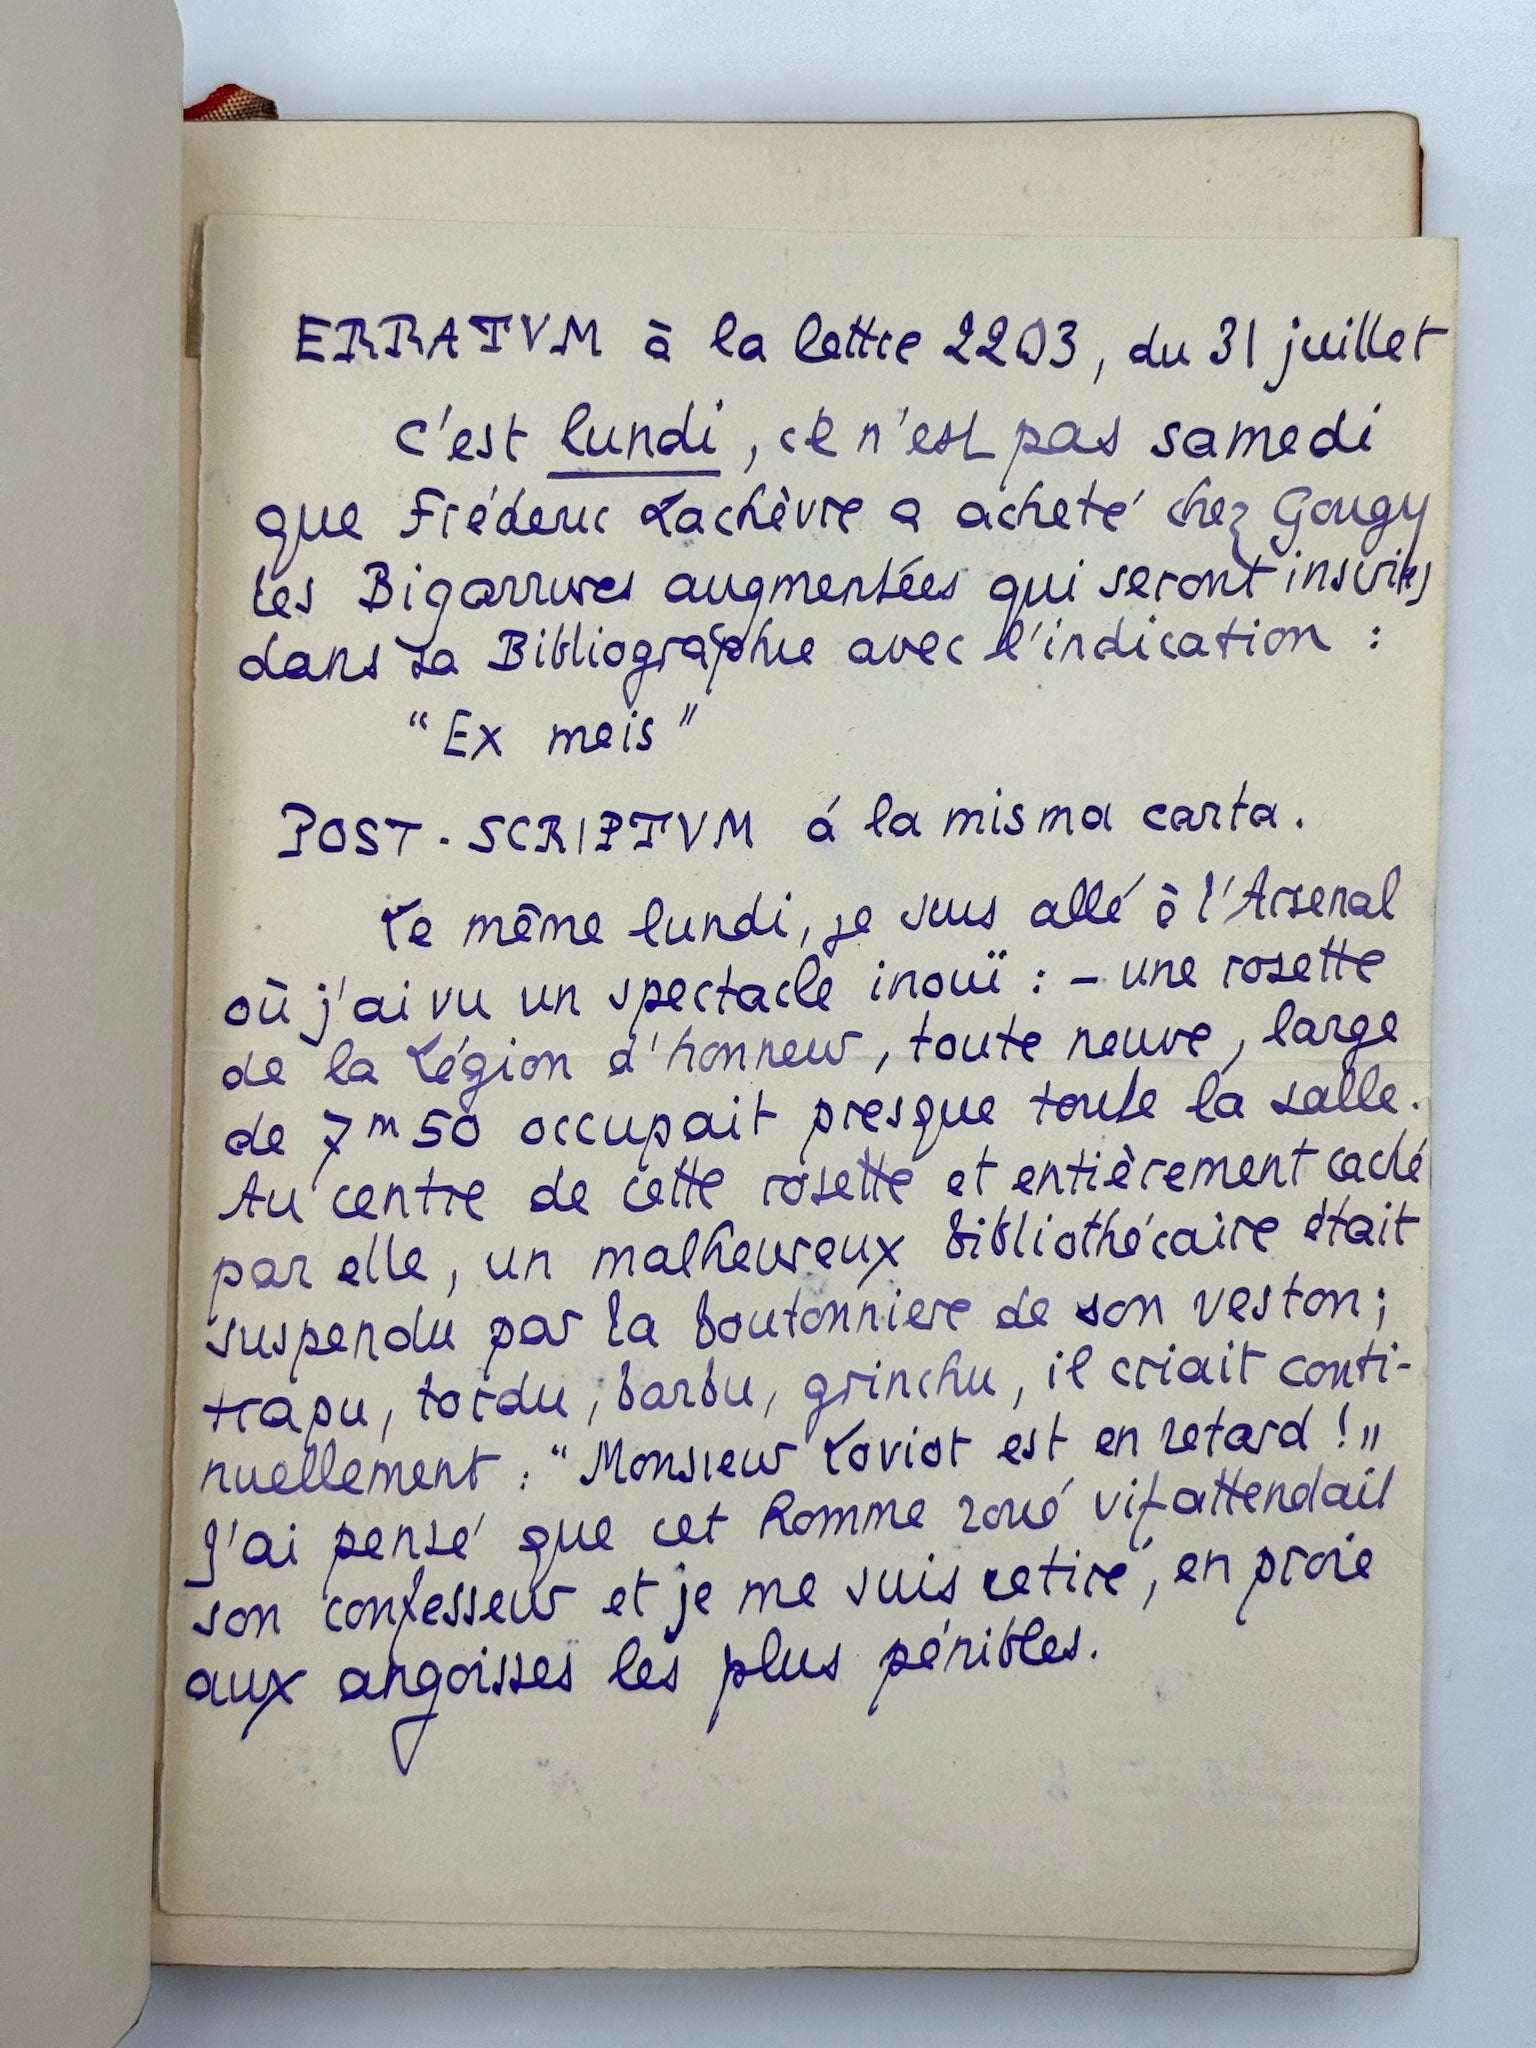 ERRATVM à la lettre 2203, du 31 juillet
C'est lundi, ce n'est pas samedi
que Frédéric Lachèvre a acheté chez Gougy
les Bigarrures augmentées qui seront inscrites
dans La Bibliographie avec l'indication :
"Ex meis"
POST-SCRIPTVM á la misma carta.
Le même lundi, je suis allé à l'Arsenal
où j'ai vu un spectacle inouï : – une rosette
de la Légion d'honneur, toute neuve, large
de 7m50 occupait presque toute la salle.
Au centre de cette rosette et entièrement caché
par elle, un malheureux bibliothécaire était
suspendu par la boutonniere de son veston ;
trapu, tordu, barbu, grinchu, il criait conti-
nuellement : "Monsieur Loviot est en retard !"
J'ai pensé que cet homme roué vif attendait
son confesseur et je me suis retiré, en proie
aux angoisses les plus pénibles.